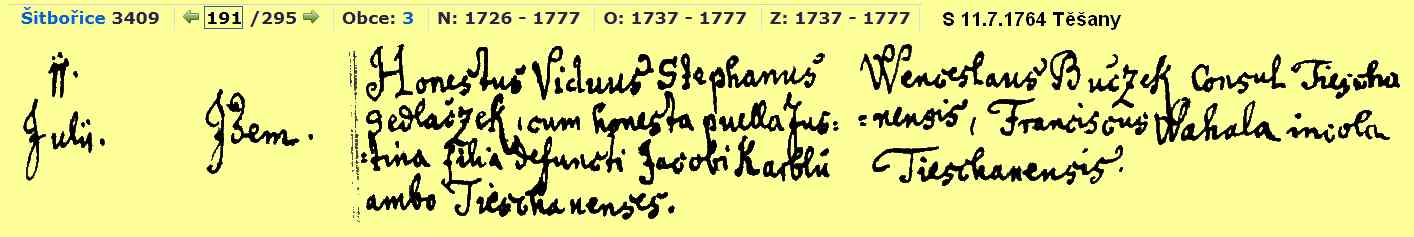 Šitbořice 3409 191 /295 Obce: 3 N: 1726 - 1777 O: 1737 - 1777 Z: 1737 - 1777 S 11.7.1764 Těšany
11.
Julii.
Idem.
Honestus Viduus Stephanus
Sedlaczek, cum honesta puella Jus=
=tina filia defuncti Jacobi Karblů
ambo Tieschanenses.
Wenceslaus Buczek Consul Tiescha
=nensis, Franciscus Wahala incola
Tieschanensis.